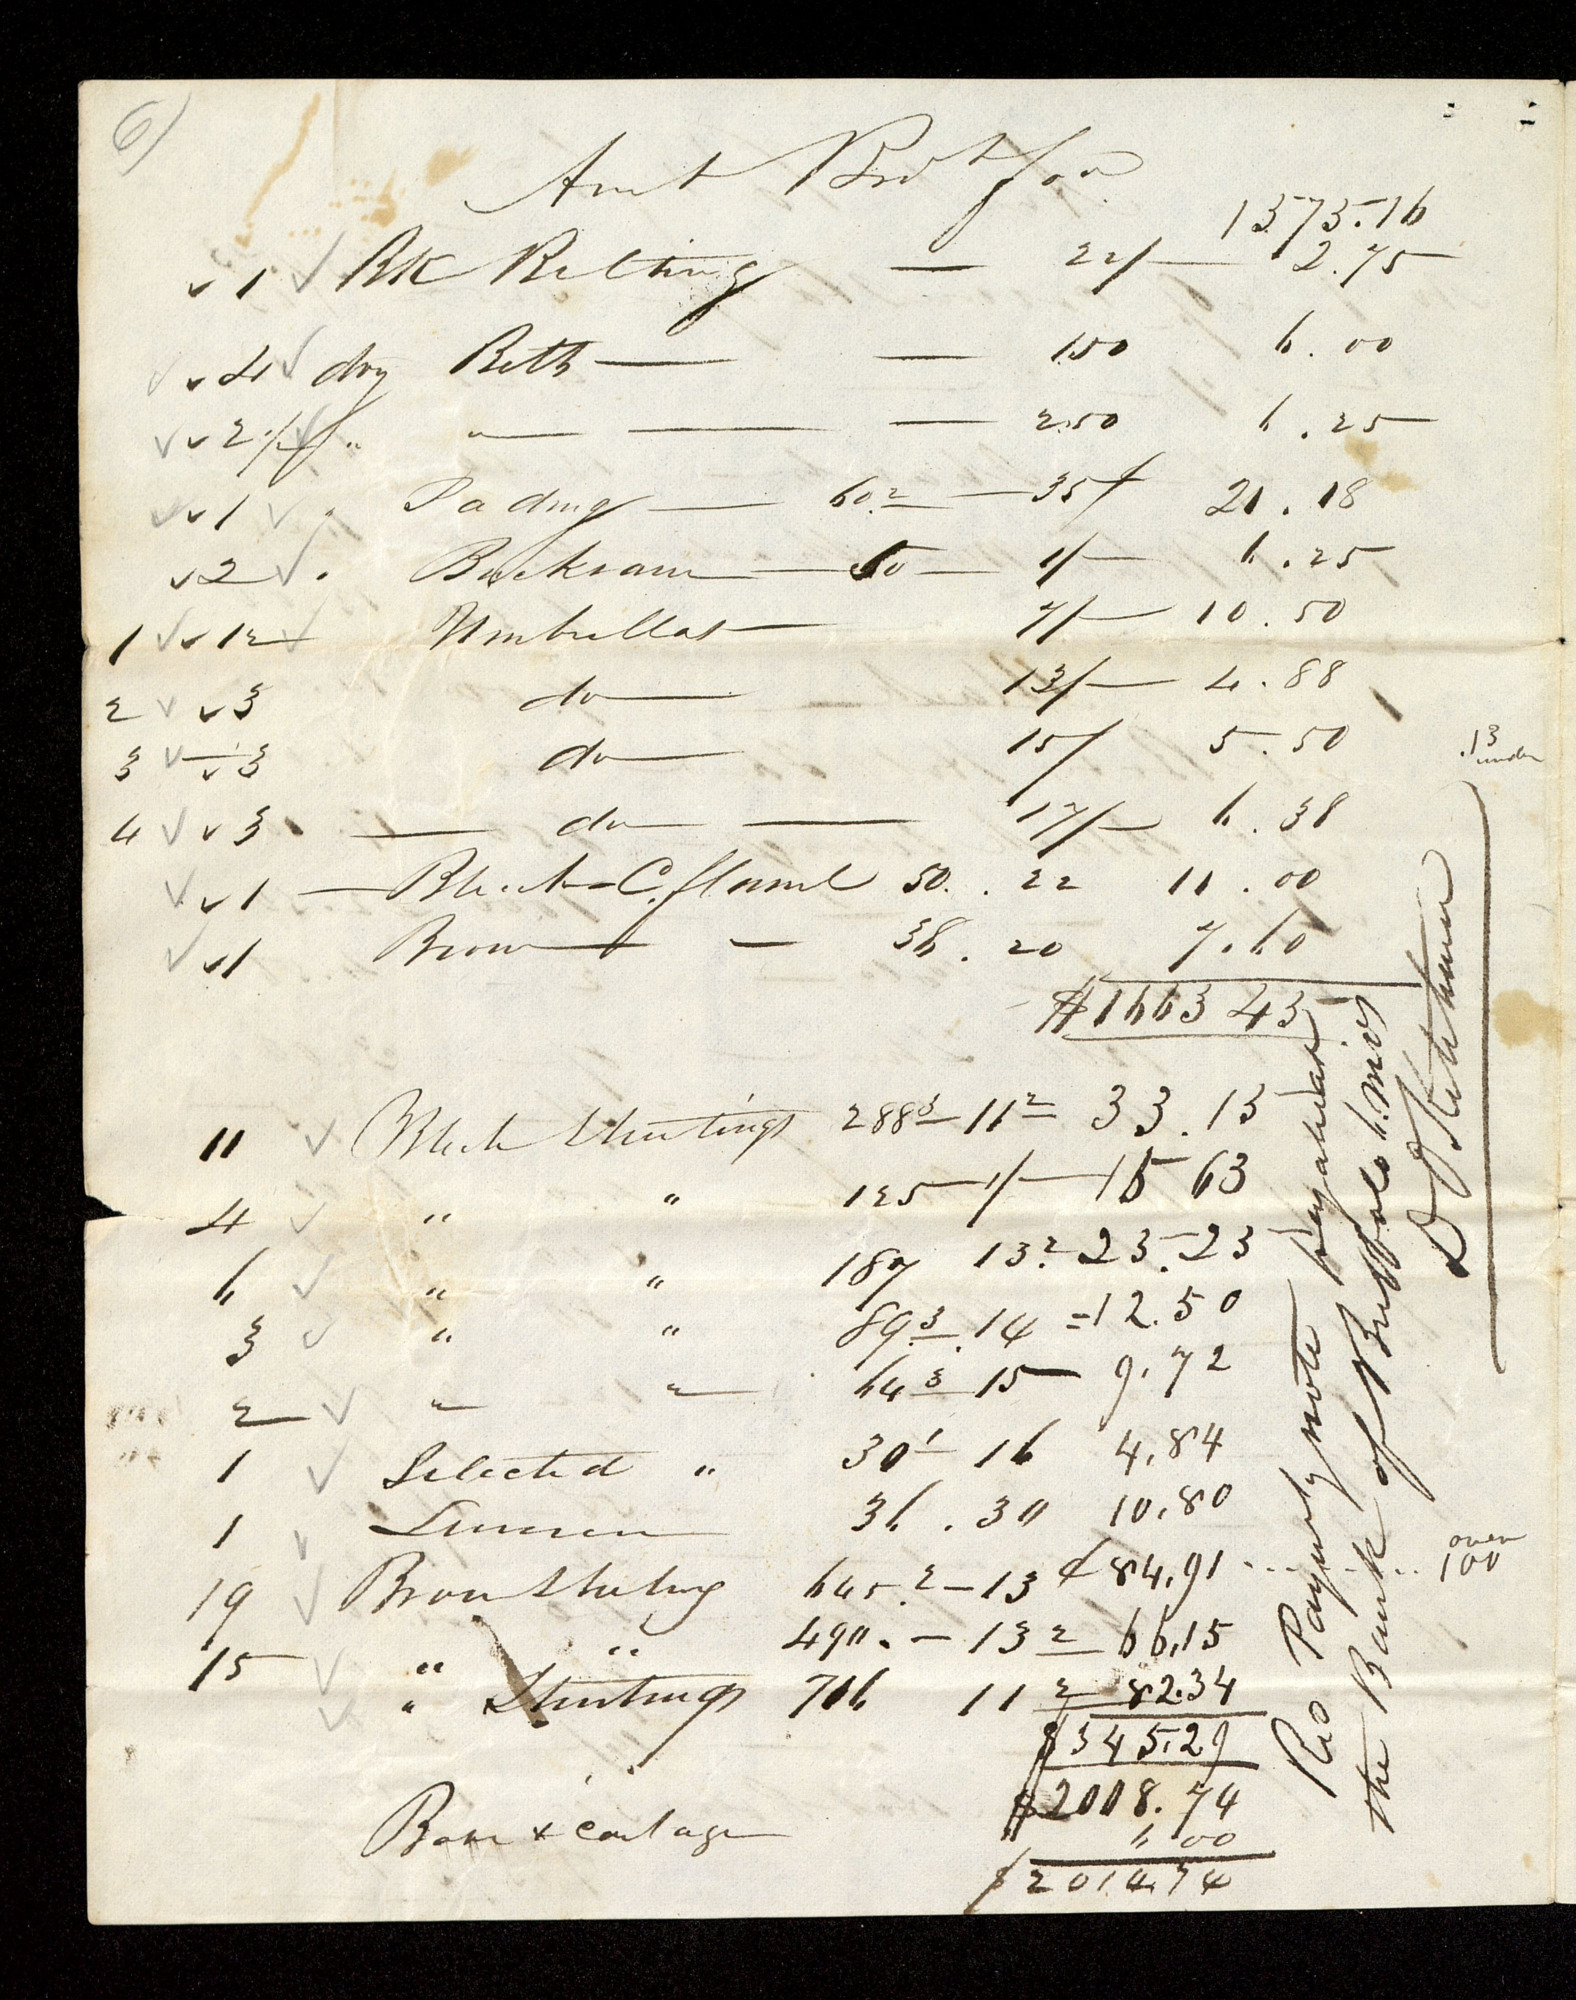 6)
Amt Brot for
1573.16
1 BK Belting — 22/— 2.75
4 doz Belts — — 1.50 6.00
2 1/2 " " — — 2.50 6.25
1 " Pading — 60.2 — 35¢ 21.18
2 " Buckram — 50 — 1/— 6.25
1 12 Umbrellas — 7/— 10.50
2 3 do — 13/— 4.88
3 3 do — 15/ 5.50
.13 under
4 3 — do — 17/— 6.38
1 — Black C. flannel 50. . 22 11.00
1 Brown — — 38 . 20 7.60
$1663 43
11 Blch Shirtings 288 3 — 11 2 = 33.13
4 " " 125 — 1/— 15 63
6 " " 187 13.2 — 23.23
3 " " 89.3 . 14 = 12.50
2 " " 64 3 — 15 — 9.72
1 Selected " 30 1 — 16 4.84
1 36 . 30 10.80
19 Brown Sheeting 645.2 — 13 ¢ 84.91 . . . . . over 100
15 " " 490. — 13 2 66.15
" Shirtings 716 11 2 82.34
$345.29
$2008.74
Boxes & cartage 6.00
$2014.74
Rec Payment by note payable at
the Bank of Buffalo 6. mos